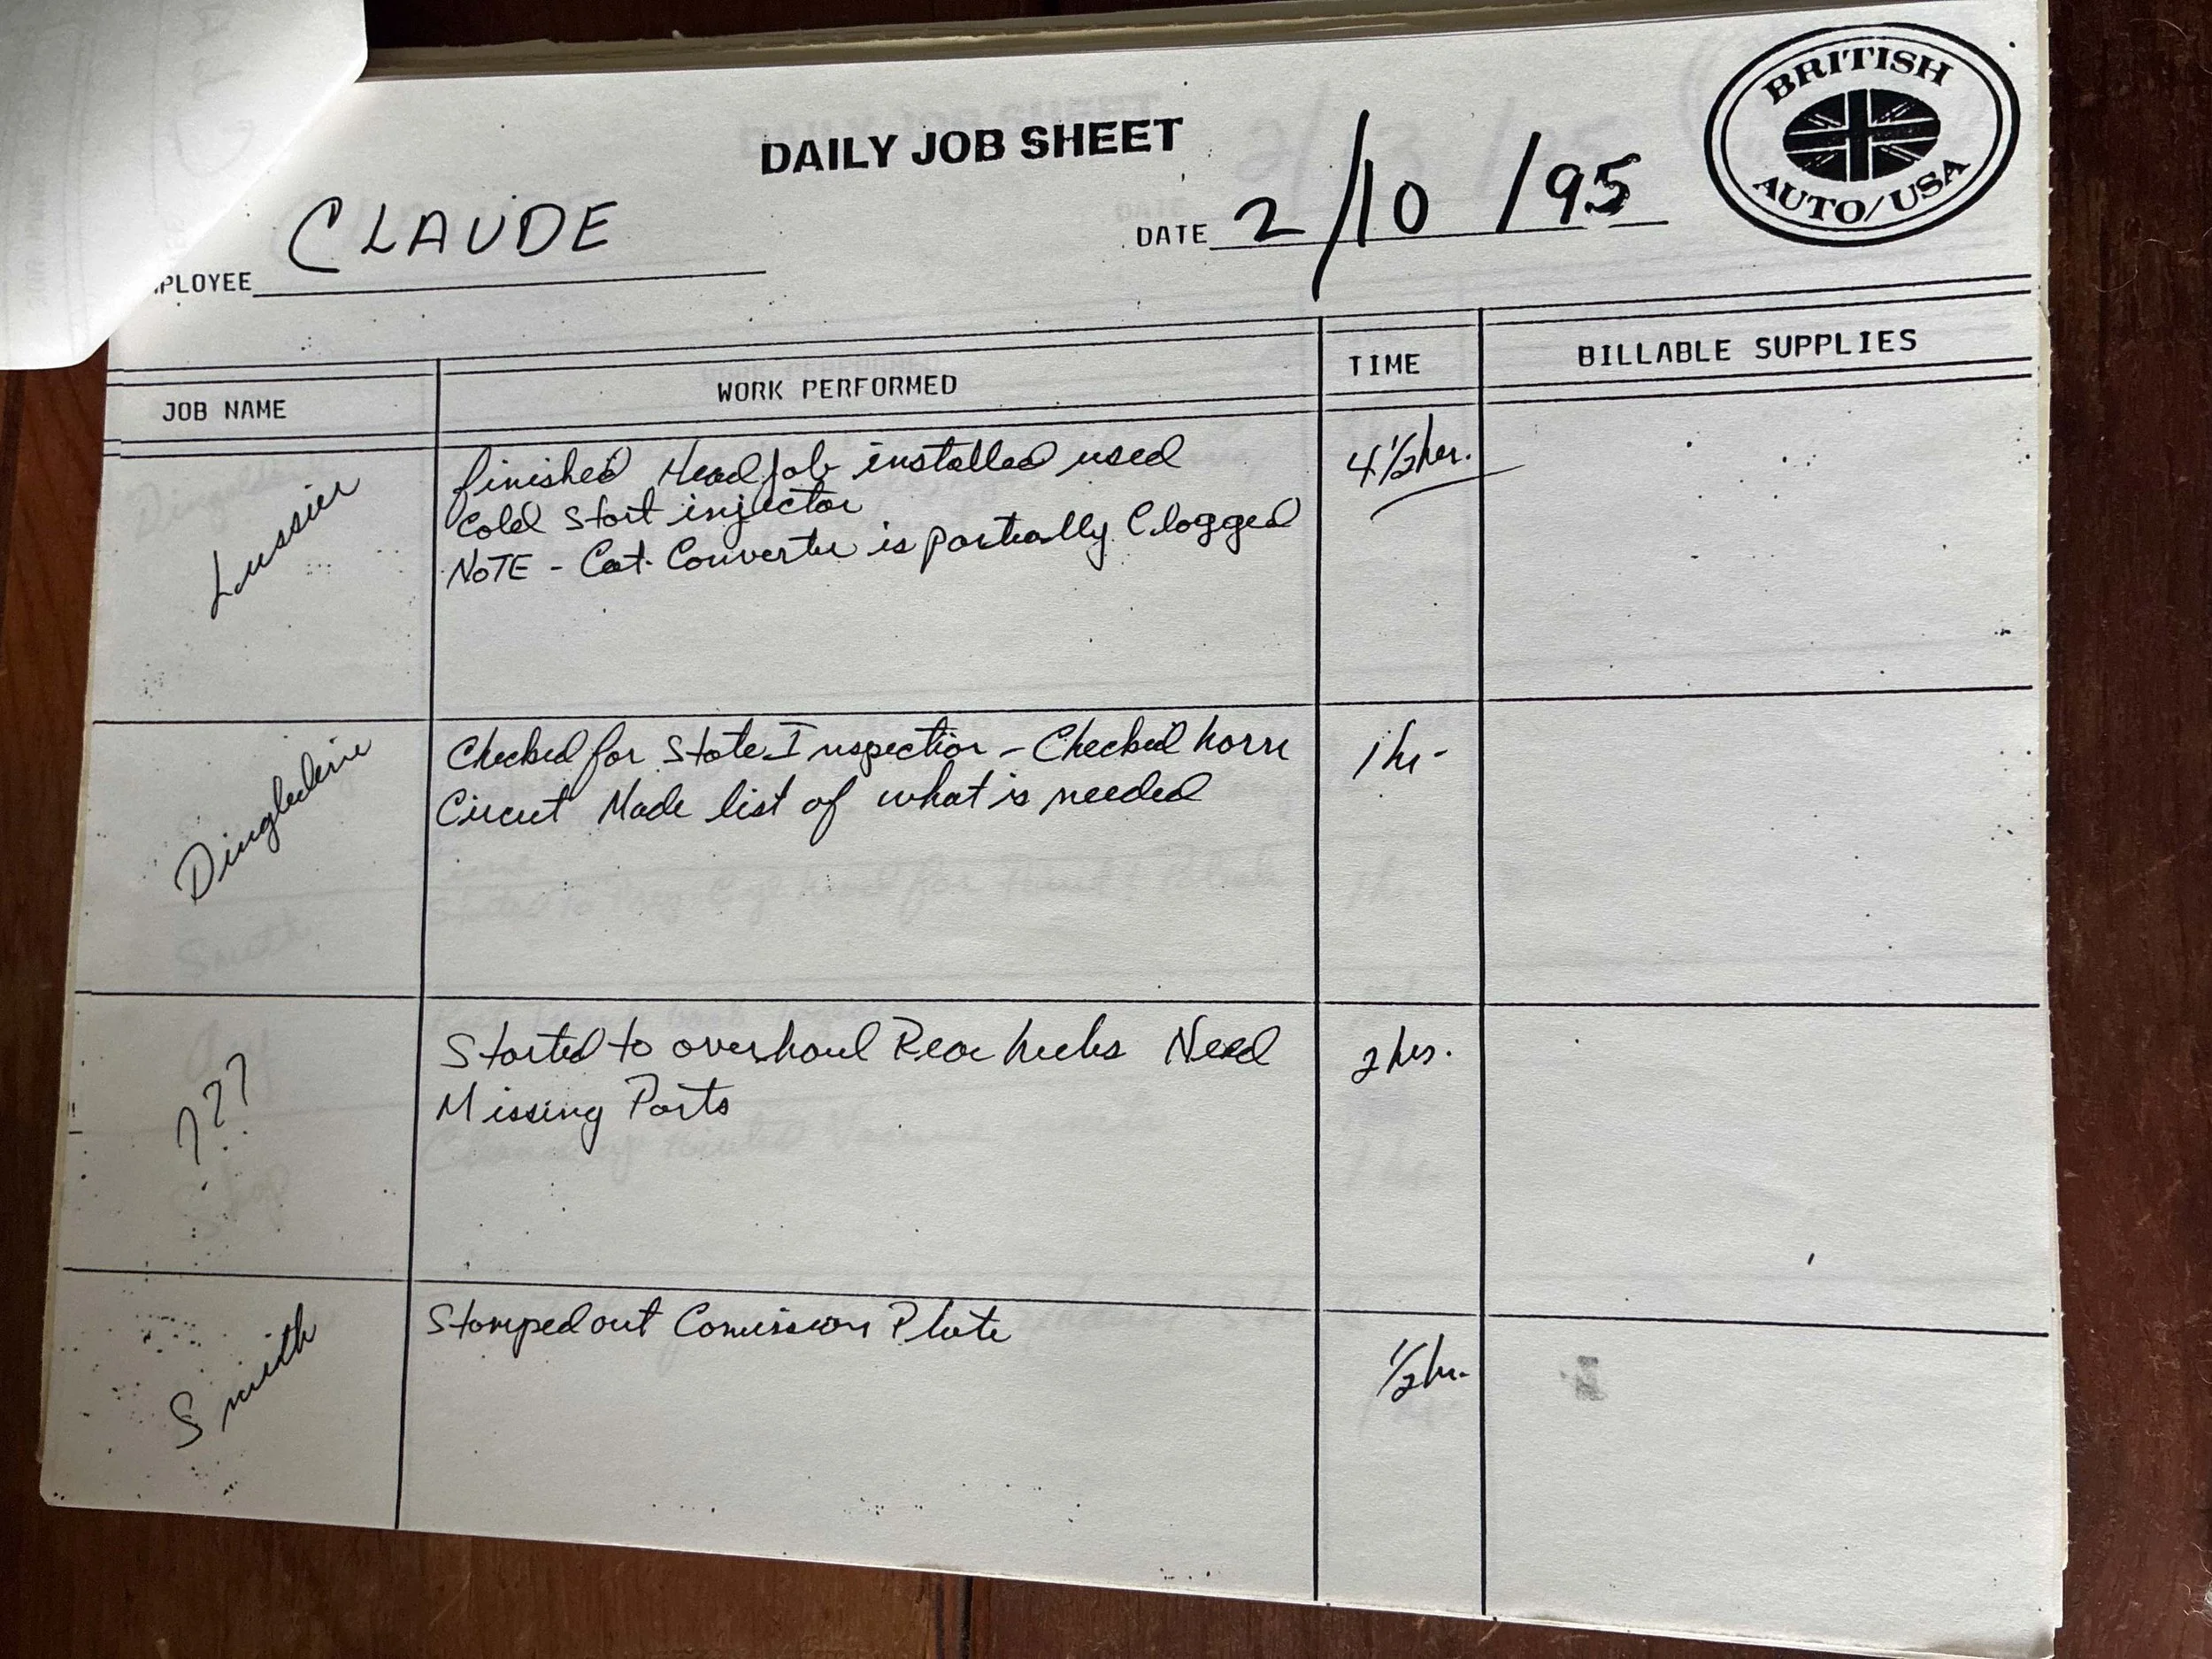 DAILY JOB SHEET
BRITISH
AUTO/USA
PLOYEE CLAUDE
DATE 2/10/95
JOB NAME
WORK PERFORMED
TIME
BILLABLE SUPPLIES
Lussier
finished Head job installed used
Cold Start injector
NOTE - Cat. Converter is partially Clogged
4 1/2 hrs.
Dingledine
Checked for State Inspection - Checked horn
Circut Made list of what is needed
1 hr-
???
Started to overhaul Rear hubs Need
Missing Parts
2 hrs.
Smith
Stamped out Comission Plate
1/2 hr.